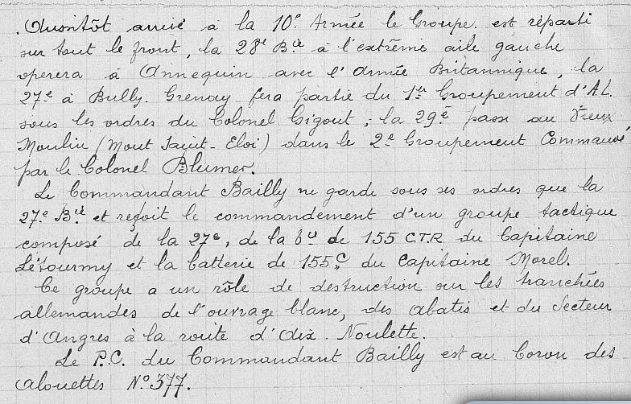 . Aussitôt arrivé à la 10e Armée le Groupe est réparti
sur tout le front, la 28e Bie à l'extrême aile gauche
operera à Annequin avec l'Armée Britannique, la
27e à Bully. Grenay fera partie du 1er Groupement d'A.L.
sous les ordres du Colonel Gigout ; la 29e passe au Vieux
Moulin (Mont Saint-Eloi) dans le 2e Groupement Commandé
par le Colonel Blumer.
Le Commandant Bailly ne garde sous ses ordres que la
27e Bie et reçoit le commandement d'un groupe tactique
composé de la 27e, de la bie de 155 C.T.R. du Capitaine
Létourmy et la batterie de 155C du Capitaine Morel.
Ce groupe a un rôle de destruction sur les tranchées
allemandes de l'ouvrage blanc, des abatis et du Secteur
d'Angres à la route d'Aix. Noulette.
Le P.C. du Commandant Bailly est au Coron des
Alouettes No 377.